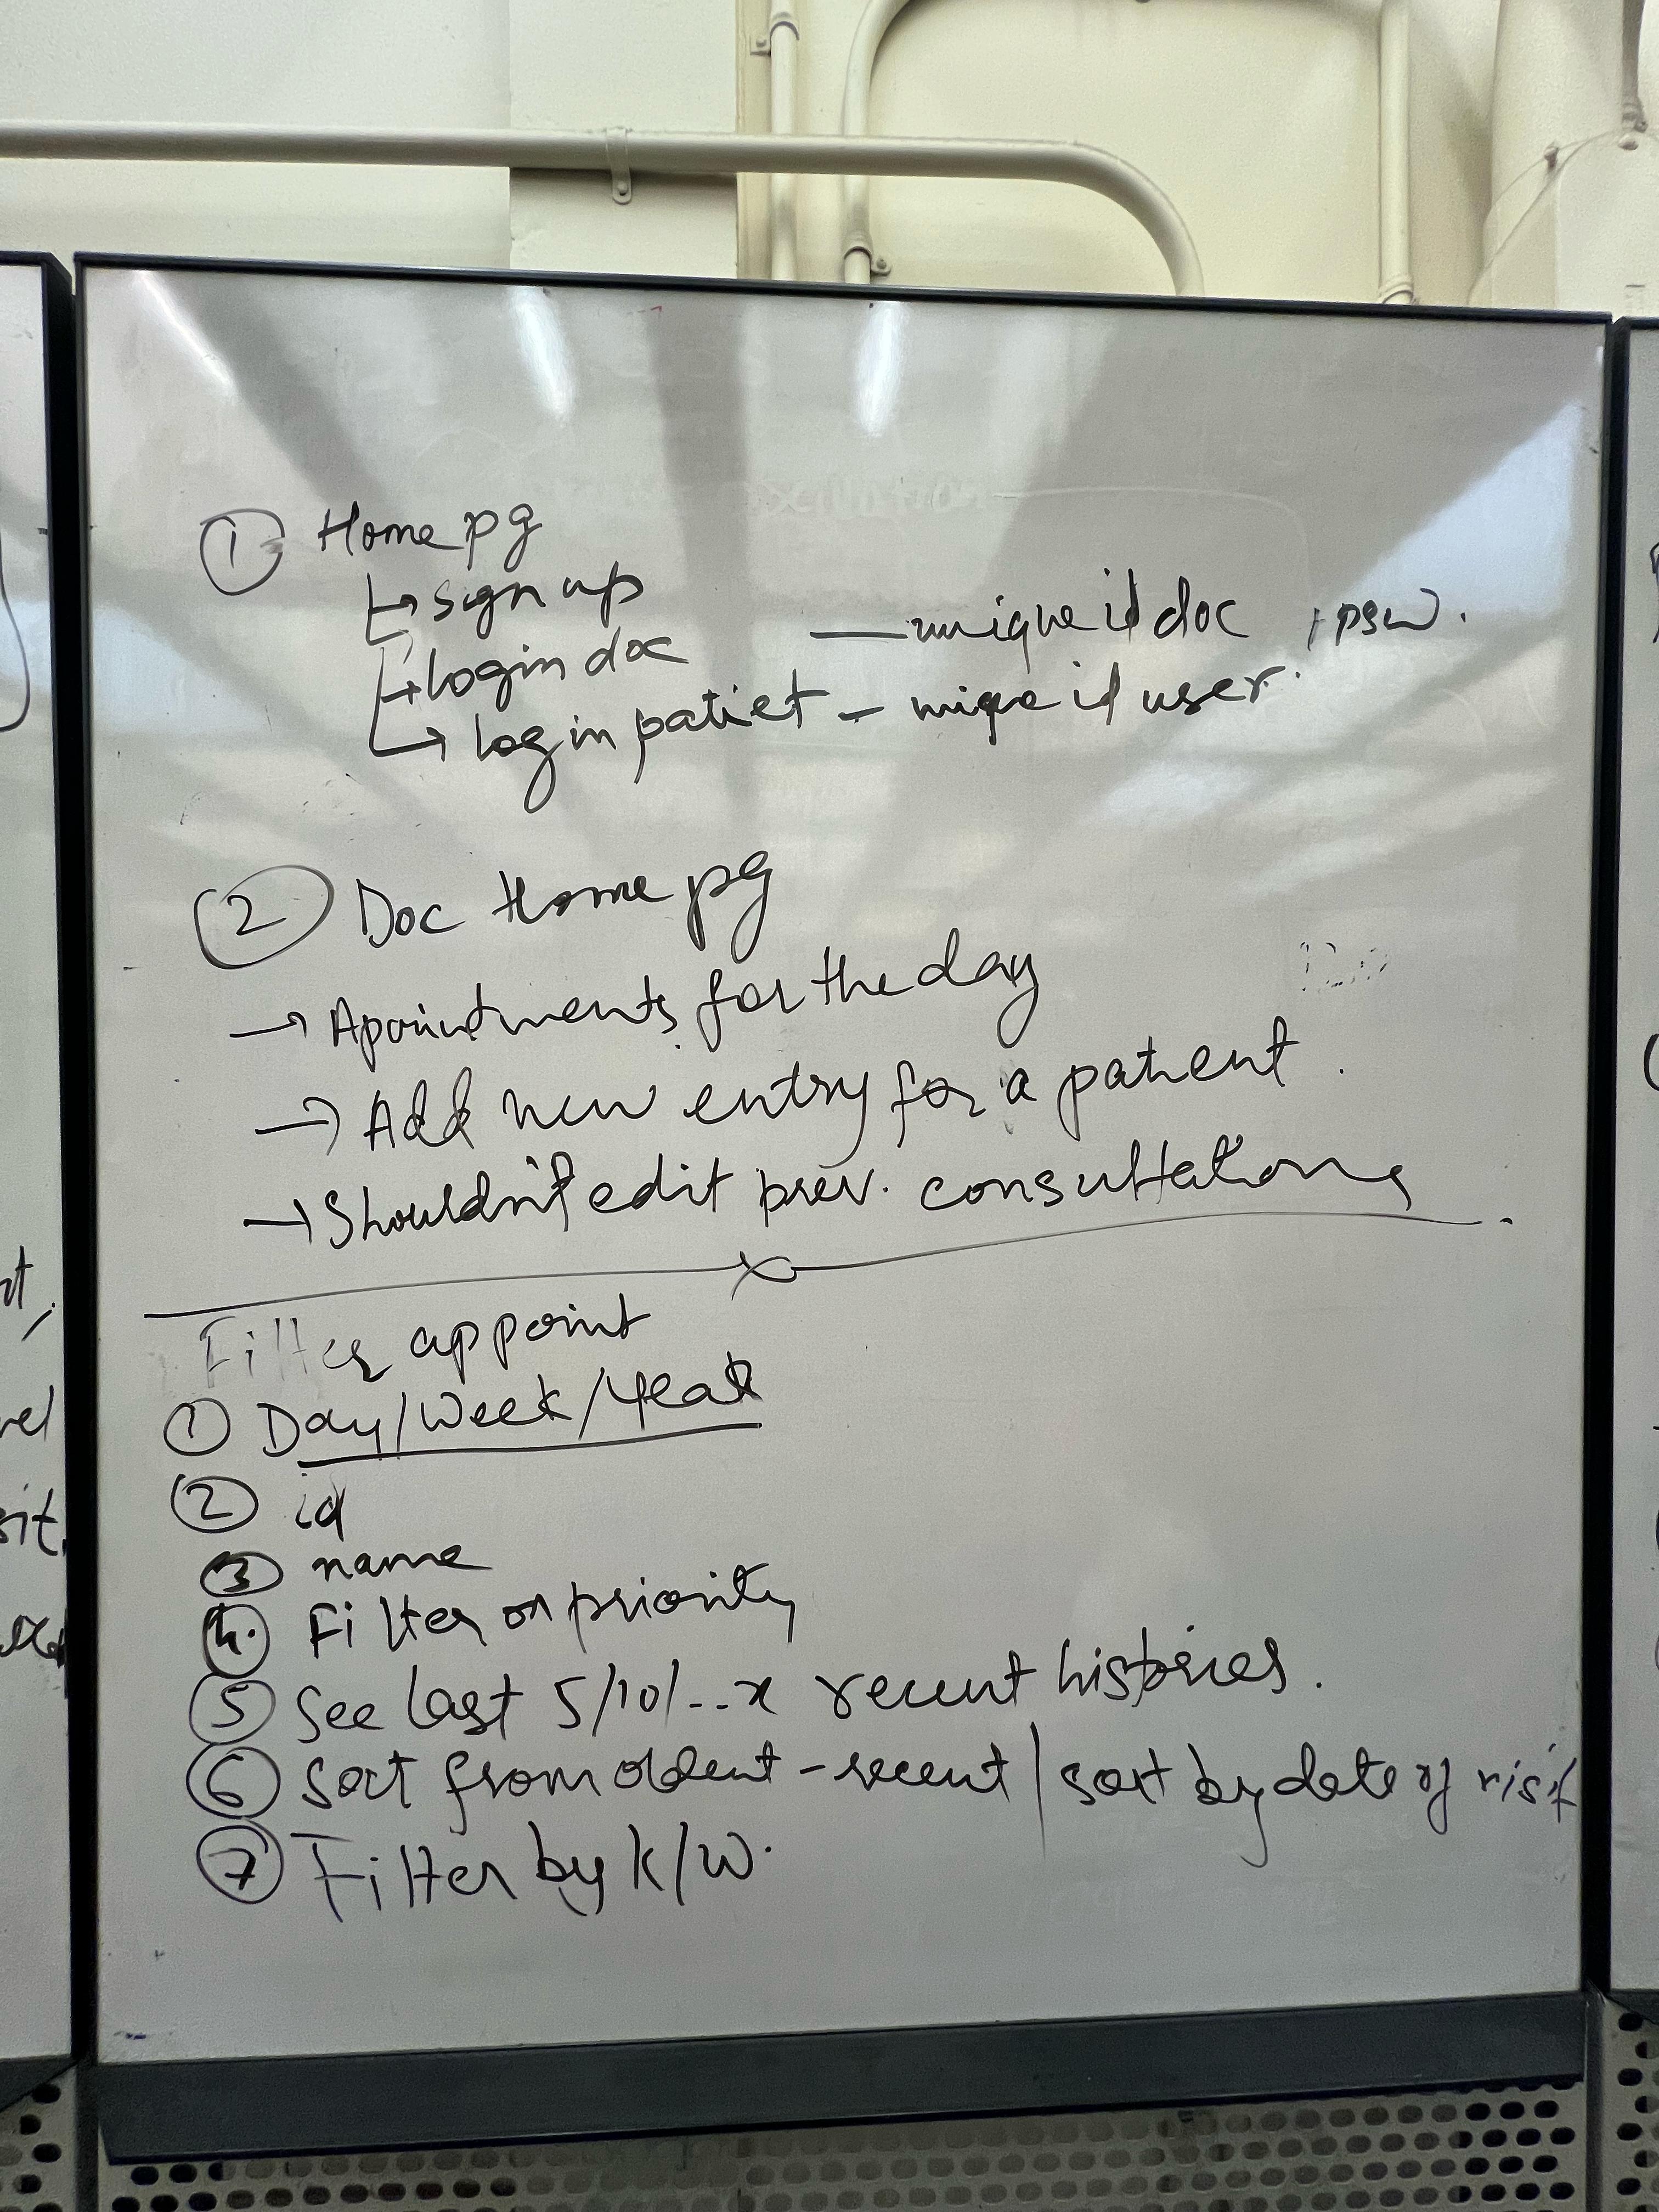 ① Home pg
↳ sign up
↳ login doc — unique id doc, psw.
↳ login patiet – uniqe id user.
② Doc Home pg
→ Apointments for the day
→ Add new entry for a patient.
→ Shouldn't edit prev. consultations.
Filter appoint
① Day/Week/Year
② id
③ name
4. Filter on priority
⑤ See last 5/10/--x recent histories.
⑥ Sort from oldent - recent / sort by date of visit
⑦ Filter by k/w.